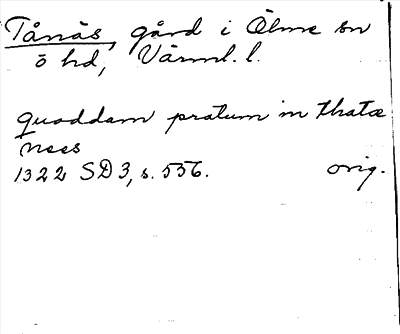 Tånäs, gård i Ölme sn
ö hd, Värml. l.
quoddam pratum in thatæ
nees
1322 SD 3, s. 536. orig.